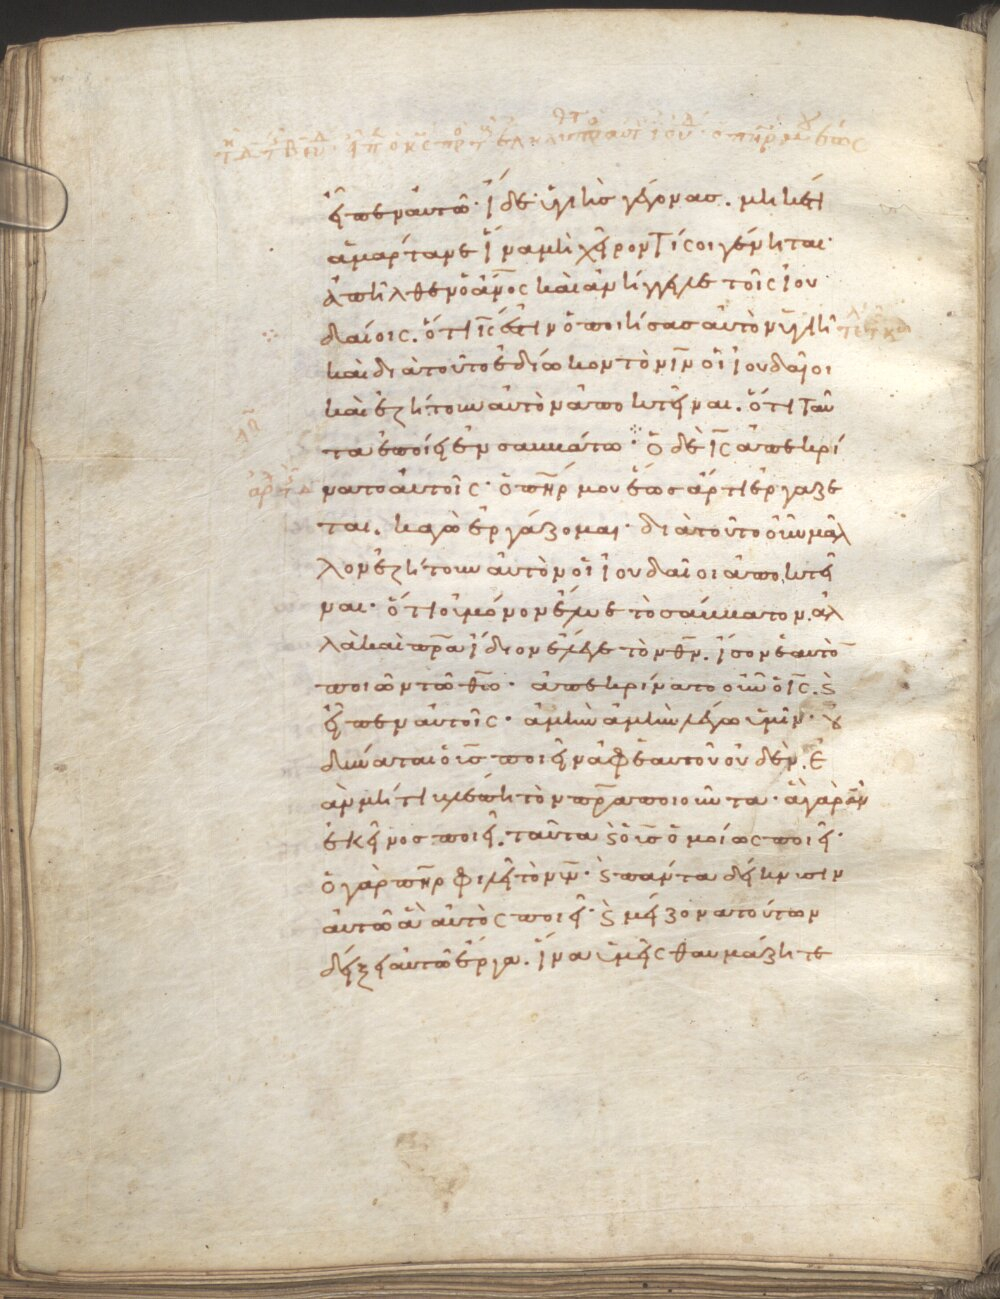 εἶπεν αὐτῶ· ἴδε ὑγιὴς γέγονας. μηκέτι
ἁμάρτανε ἵνα μὴ χεῖρόν τί σοι γένηται·
ἀπῆλθεν ὁ ἄνος καὶ ἀνήγγειλε τοῖς ἰου
δαίοις. ὅτι ις ἐστιν ὁ ποιήσας αὐτὸν ὑγιῆ
καὶ διὰ τοῦτο ἐδίωκον τὸν ιν οἱ ἰουδαῖοι
καὶ ἐζήτουν αὐτὸν ἀποκτεῖναι. ὅτι ταῦ
τα ἐποίει ἐν σαββάτω ὁ δὲ ις ἀπεκρί
νατο αὐτοῖς· ὁ πηρ μου ἕως ἄρτι ἐργάζε
ται. καγὼ ἐργάζομαι· διὰ τοῦτο οὖν μᾶλ
λον ἐζήτουν αὐτὸν οἱ ἰουδαῖοι ἀποκτεῖ
ναι· ὅτι οὐ μόνον ἔλυε τὸ σάββατον. ἀλ
λὰ καὶ πρα ἴδιον ἔλεγε τὸν θν. ἴσον ἑαυτὸ
ποιῶν τῶ θω· ἀπεκρίνατο οὖν ὁ ις. ϗ
εἶπεν αὐτοῖς· ἀμὴν ἀμὴν λέγω ὑμῖν· οὐ
δύναται ὁ υς ποιεῖν ἀφ ἑαυτοῦ οὐδὲν. ἐ
ὰν μή τι βλέπη τὸν πρα ποιοῦντα· ἃ γὰρ ἂν
ἐκεῖνος ποιεῖ. ταῦτα ϗ ὁ υς ὁμοίως ποιεῖ·
ὁ γὰρ πηρ φιλεῖ τὸν υν· ϗ πάντα δείκνυσιν
αὐτῶ ἃ αὐτὸς ποιεῖ· ϗ μείζονα τούτων
δείξει αὐτῶ ἔργα. ἵνα ὑμεῖς θαυμάζητε